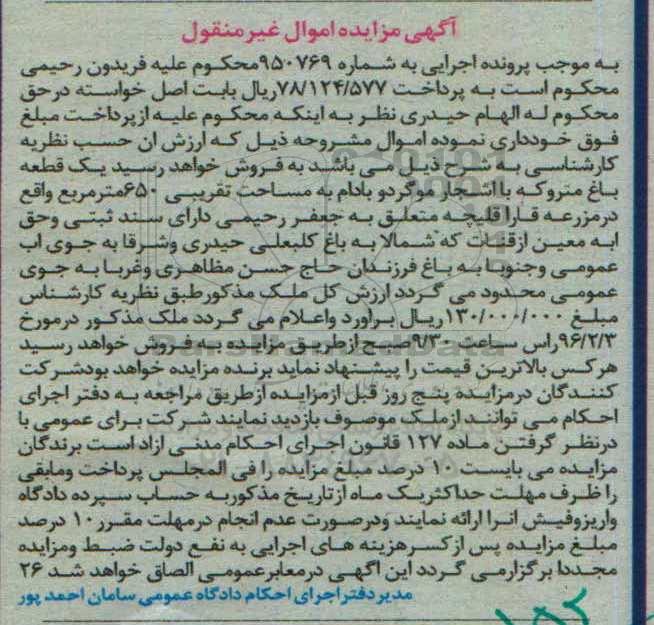 آگهی مزایده اموال غیر منقول
به موجب پرونده اجرایی به شماره ۹۵۰۷۶۹محکوم علیه فریدون رحیمی
محکوم است به پرداخت ۷۸/۱۲۴/۵۷۷ریال بابت اصل خواسته درحق
محکوم له الهام حیدری نظر به اینکه محکوم علیه ازپرداخت مبلغ
فوق خودداری نموده اموال مشروحه ذیل که ارزش ان حسب نظریه
کارشناسی به شرح ذیل می باشد به فروش خواهد رسید یک قطعه
باغ متروکه با اشجار موگردو بادام به مساحت تقریبی ۶۵۰مترمربع واقع
درمزرعه قارا قلیچه متعلق به جعفر رحیمی دارای سند ثبتی وحق
ابه معین ازقنات که شمالا به باغ کلبعلی حیدری وشرقا به جوی اب
عمومی وجنوبا به باغ فرزندان حاج حسن مظاهری وغربا به جوی
عمومی محدود می گردد ارزش کل ملک مذکورطبق نظریه کارشناس
مبلغ ۱۳۰/۰۰۰/۰۰۰ریال براورد واعلام می گردد ملک مذکور درمورخ
۹۶/۲/۳راس ساعت ۹/۳۰صبح ازطریق مزایده به فروش خواهد رسید
هرکس بالاترین قیمت را پیشنهاد نماید برنده مزایده خواهد بودشرکت
کنندگان درمزایده پنج روز قبل ازمزایده ازطریق مراجعه به دفتر اجرای
احکام می توانند ازملک موصوف بازدید نمایند شرکت برای عمومی با
درنظر گرفتن ماده ۱۲۷ قانون اجرای احکام مدنی ازاد است برندگان
مزایده می بایست ۱۰ درصد مبلغ مزایده را فی المجلس پرداخت ومابقی
را ظرف مهلت حداکثریک ماه ازتاریخ مذکوربه حساب سپرده دادگاه
واریزوفیش انرا ارائه نمایند ودرصورت عدم انجام درمهلت مقرر۱۰ درصد
مبلغ مزایده پس ازکسرهزینه های اجرایی به نفع دولت ضبط ومزایده
مجددا برگزارمی گردد این اگهی درمعابرعمومی الصاق خواهد شد ۲۶
مدیردفتراجرای احکام دادگاه عمومی سامان احمد پور